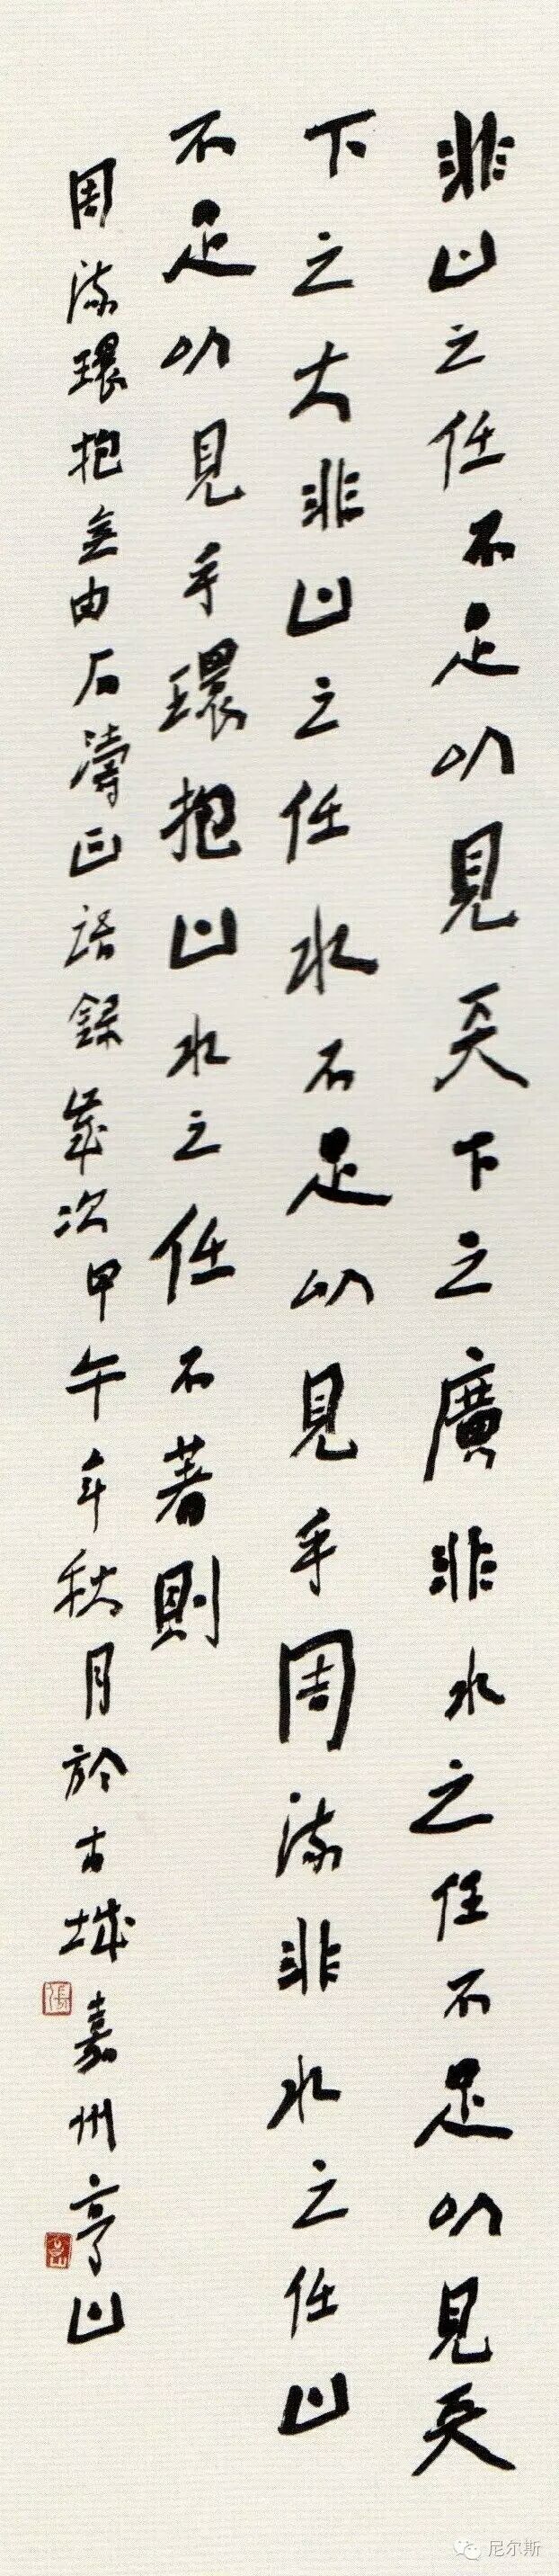 非山之任不足以見天下之廣非水之任不足以見天
下之大非山之任水不足以見乎周流非水之任山
不足以見乎環抱山水之任不著則
周流環抱無由石濤画語錄歲次甲午年秋月於古城嘉州亭山
張
尼尔斯